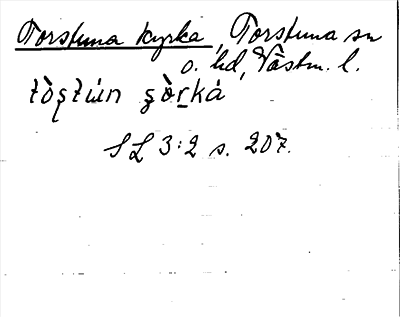 Torstuna kyrka, Torstuna sn
o. hd, Västm. l.
tὸʂtún ʂὸr̲ká
SL 3:2 s. 207.